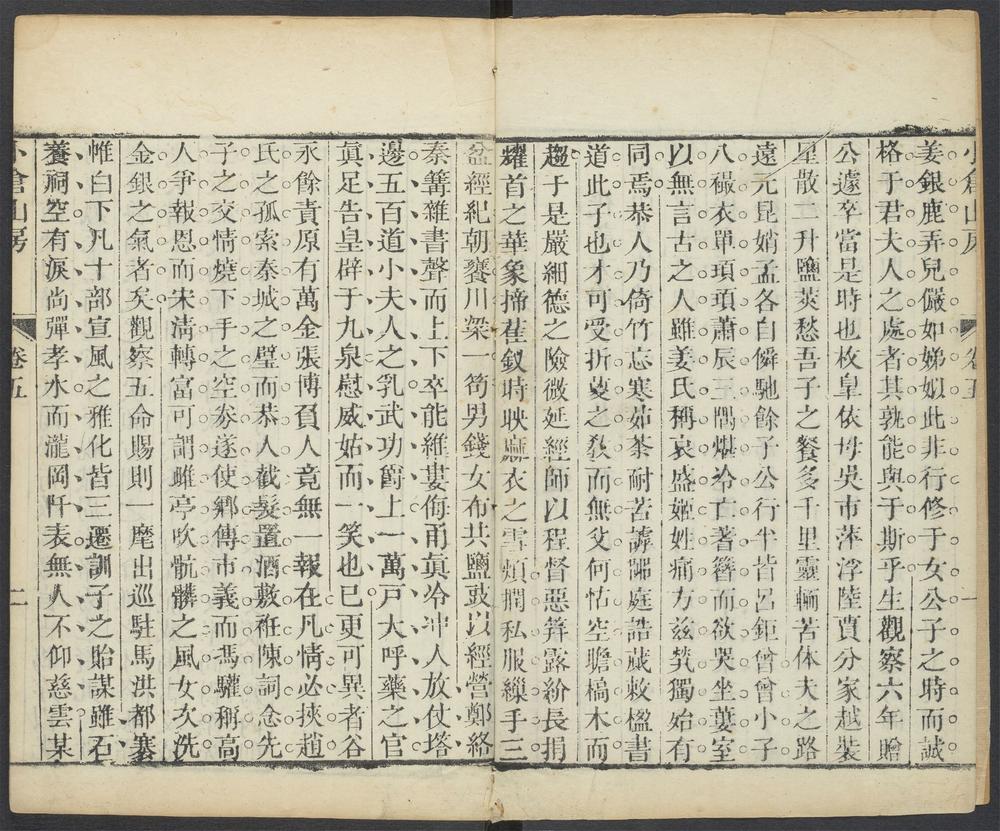 小倉山房　卷五　一
姜銀鹿弄兒儼如娣姒此非行修于女公子之時而誠
格于君夫人之處者其孰能與于斯乎生觀察六年贈
公遽卒當是時也枚皐依母吳市萍浮陸賈分家越裝
星散二升鹽莢愁吾子之餐多千里靈輀苦体夫之路
遠元昆娋孟各自僯馳餘子公行半皆呂鉅曾曾小子
八襊衣單頊頊蕭辰三隅煁冷亡著簪而欲哭坐蔓室
以無言古之人雖姜氏稱哀盛姬姓痛方兹煢獨始有
同焉恭人乃倚竹忘寒茹荼耐苦謼俙庭誥蕆敕楹書
道此子也才可受折葼之敎而無父何怙空瞻橋木而
趨于是嚴細德之險微延經師以程督惡筓露紒長捐
耀首之華象揥荏釵時映麻衣之雪煩撋私服繅手三
盆經紀朝饔川粱一笱男錢女布共鹽豉以經營鄭綌
秦篝雜書聲而上下卒能維婁侮甬眞冷冲人放仗塔
邊五百道小夫人之乳武功爵上一萬戸大呼藥之官
眞足告皇辟于九泉慰威姑而一笑也巳更可異者谷
永餘責原有萬金張博負人竟無一報在凡情必挾趙
氏之孤索秦城之璧而恭人截髮置酒敷袵陳詞念先
子之交情燒下手之空劵遂使鄕傳市義而馮驩稱高
人爭報恩而宋淸轉富可謂雎亭吹骯髒之風女次洗
金銀之氣者矣觀察五命賜則一麾出巡駐馬洪都褰
帷白下凡十部宣風之雅化皆三遷訓子之貽謀雖石
養祠空有淚尚彈孝水而瀧岡阡表無人不仰慈雲某
小倉山房　卷五　二